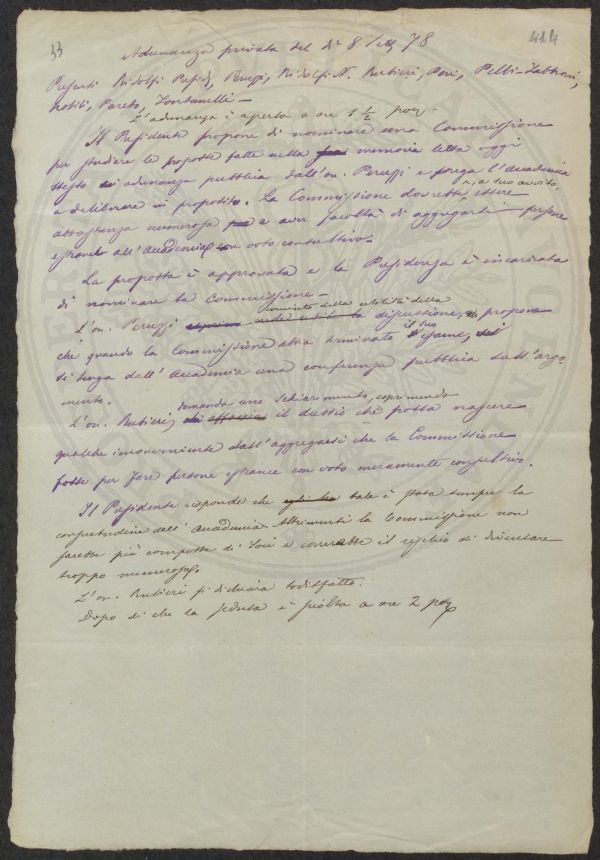 33
414
Adunanza privata del dì 8 Sett. 78
Presenti Ridolfi Presid., Peruzzi, Ridolfi N. Rubieri, Pelli-Fabbroni,
Pareto, Fontanelli —
L'adunanza è aperta a ore 1 ½ pom.
Il Presidente propone di nominare una Commissione
per studiare le proposte fatte nella memoria letta oggi
stesso in adunanza pubblica dall'on. Peruzzi e prega l'Accademia
a deliberare in proposito. La Commissione dovrebbe, a suo avviso, essere
abbastanza numerosa e aver facoltà di aggregarsi persone
estranee all'Accademia con voto consultivo.
La proposta è approvata e la Presidenza è incaricata
di nominare la Commissione —
L'on. Peruzzi convinto della utilità della discussione, propone
che quando la Commissione abbia terminato il suo esame,
si tenga dall'Accademia una conferenza pubblica sull'argo-
mento.
L'on. Rubieri, domanda uno schiarimento, esprimendo il dubbio che possa nascere
qualche inconveniente dall'aggregarsi che la Commissione
fosse per fare persone estranee con voto meramente consultivo.
Il Presidente risponde che tale è stata sempre la
consuetudine dell'Accademia. Altrimenti la Commissione non
sarebbe più composta di Soci e correrebbe il rischio di diventare
troppo numerosa.
L'on. Rubieri si dichiara soddisfatto.
Dopo di che la seduta è sciolta a ore 2 pom.